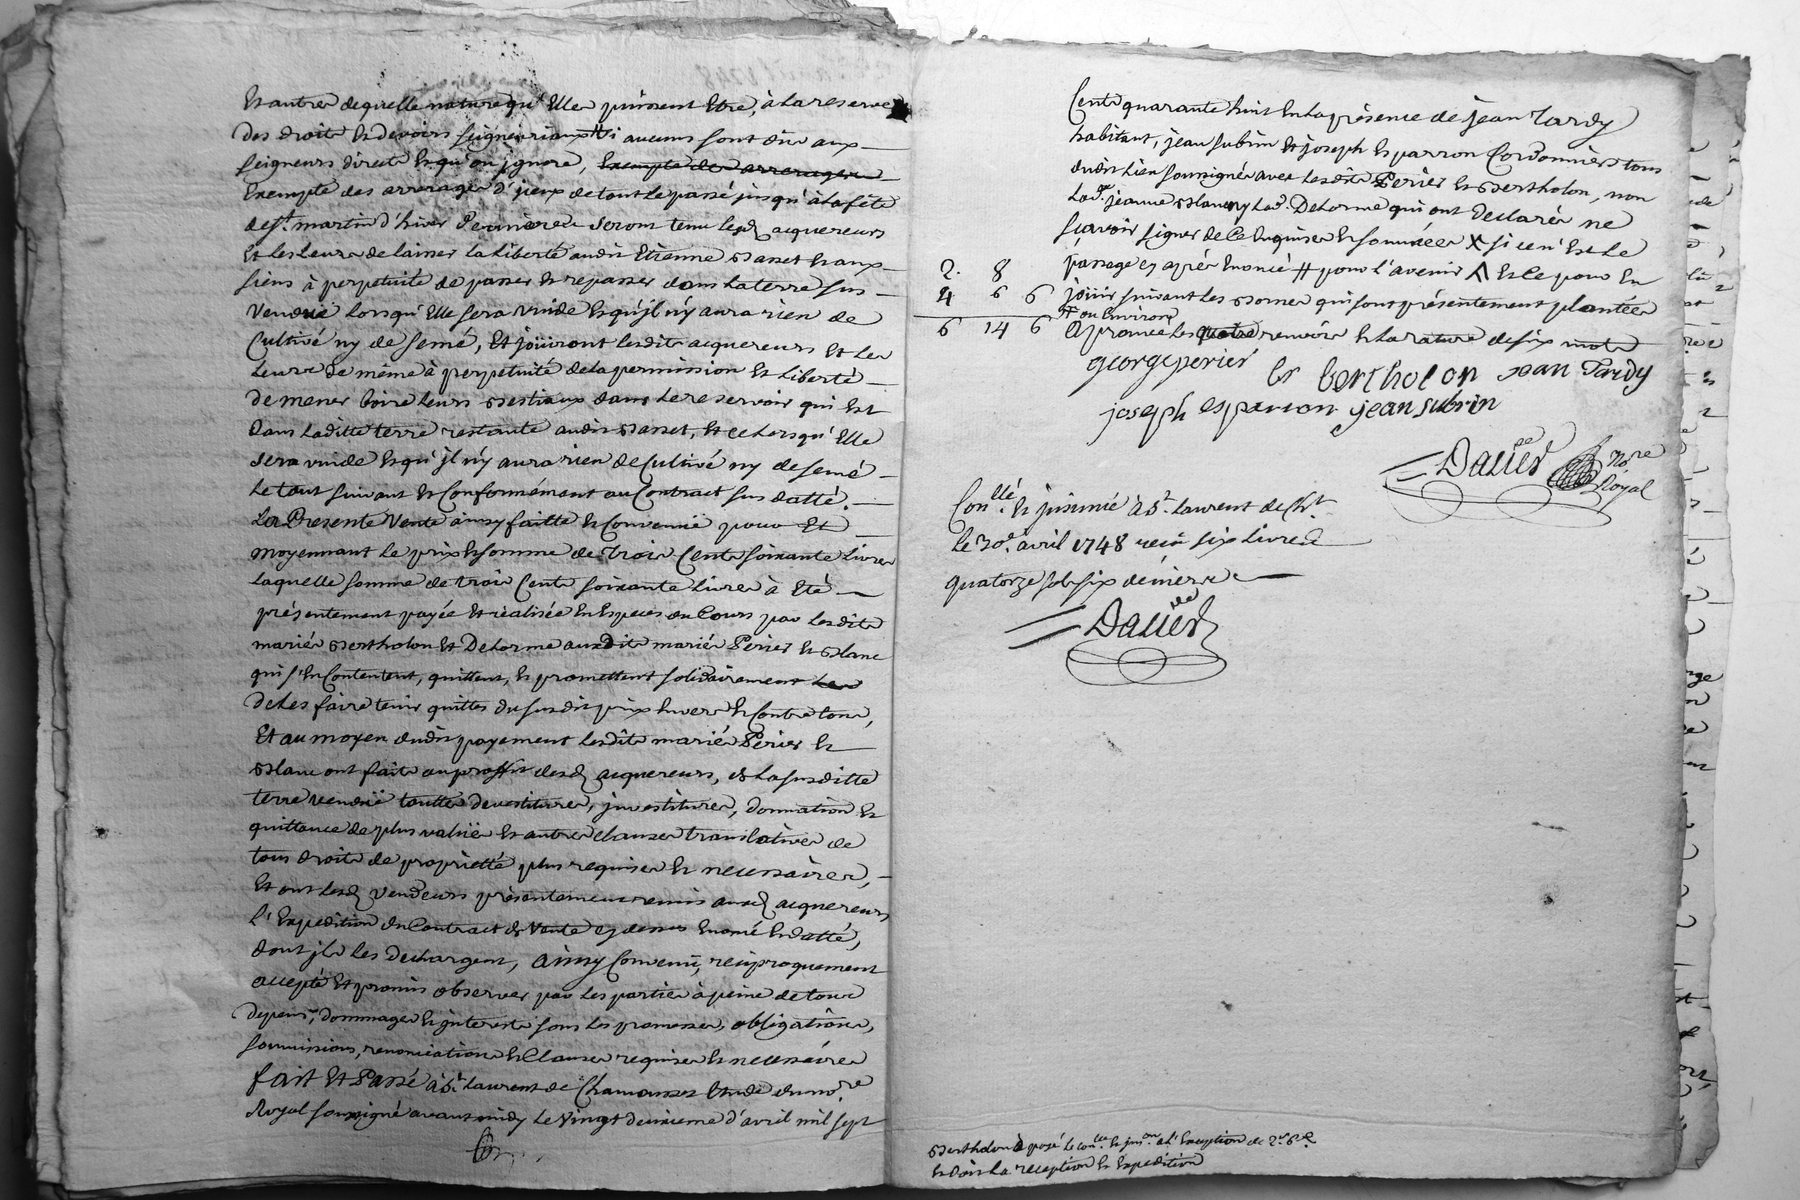 Et autres de quelle nature qu'Elles puissent Etre, à la reserve
des droits Et devoirs seigneuriaux # si aucuns sont dûs aux
seigneurs directs Et qu'on jgnore, Exempte des arrerages
Exempte des arrerages d'jceux de tout le passé jusqu'à la fête
de st. martin d'hiver Derniere seront tenu lesd acquereurs
Et les leurs de laisser la liberté audit Etienne Basset Et aux
siens à perpetuité de passer Et repasser dans la terre sus
vendüe lorsqu'Elle sera vuide Et qu'jl n'y aura rien de
Cultivé ny de semé, Et joüiront lesdits acquereurs Et les
leurs de même à perpetuité de la permission Et liberté
de mener boire leurs Bestiaux dans le reservoir qui Est
dans laditte terre restante audit Basset, Et ce lorsqu'Elle
sera vuide Et qu'jl n'y aura rien de Cultivé ny de semé
le tout suivant Et Conformément au Contract sus datté.
La Presente Vente ainsy faitte Et Convenüe pour Et
moyennant le prix Et somme de Trois Cents soixante livres
laquelle somme de trois Cents soixante livres à Eté
présentement payée Et réalisée En Especes du Cours par lesdits
mariés Bertholon Et Delorme auxdits mariés Périer Et Blanc
qui s'En Contentent, quittent, Et promettent solidairement les
de les faire tenir quittes du susdit prix Envers Et Contre tous,
Et au moyen dudit payement lesdits mariés Périer Et
Blanc ont fait au proffit desd acquereurs, de la susditte
terre vendüe touttes devestitures, jnvestitures, donnation Et
quittance de plus valüe Et autres clauses translatives de
tous droits de proprietté plus requises Et necessaires,
Et ont lesd vendeurs présentement remis auxd acquereurs
l'Expedition du Contract de Vente cy dessus Enoncé Et datté,
dont jls les dechargent, ainsy Convenu, reciproquement
accepté Et promis observer par les parties à peine de tous
depens, dommages Et jnterests sous les promesses, obligations,
soumissions, renonciations Et Clauses requises Et necessaires
fait Et Passé à St. Laurent de Chamousset Etude du nore.
Royal soussigné avant midy le Vingt deuxieme d'avril mil sept
Cents quarante huit En la présence de jean Tardy
habitant, jean Subrin Et joseph Esparron Cordonniers tous
dudit lieu soussignés avec lesdits Périer Et Bertholon, non
lad. jeanne Blanc ny lad. Delorme qui ont declarés ne
sçavoir signer de ce Enquises Et sommées X si ce n'Est le
passage cy après Enoncé # pour l'avenir Λ Et ce pour En
joüir suivant les Bornes qui sont présentement plantées
# ou Environ
Approuvé les quatre renvois Et la rature de six mots
2. 8
4 6 6
6 14 6
george perier Es bertholon jean Tardy
joseph esparron jean subrin
Dallier Nore Royal
Conllé. Et jnsinué à St. Laurent de Cht.
le 30e. avril 1748 reçu six livres
quatorze sols six deniers
Dallier
Bertholon à payé le conlle. Et jnson. à l'Exception de
Et doit la reception Et Expedition